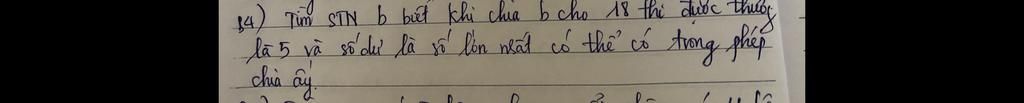 14) Tìm STN b biết khi chia b cho 18 thì được thương
là 5 và số dư là số lớn nhất có thể có trong phép
chia ấy.